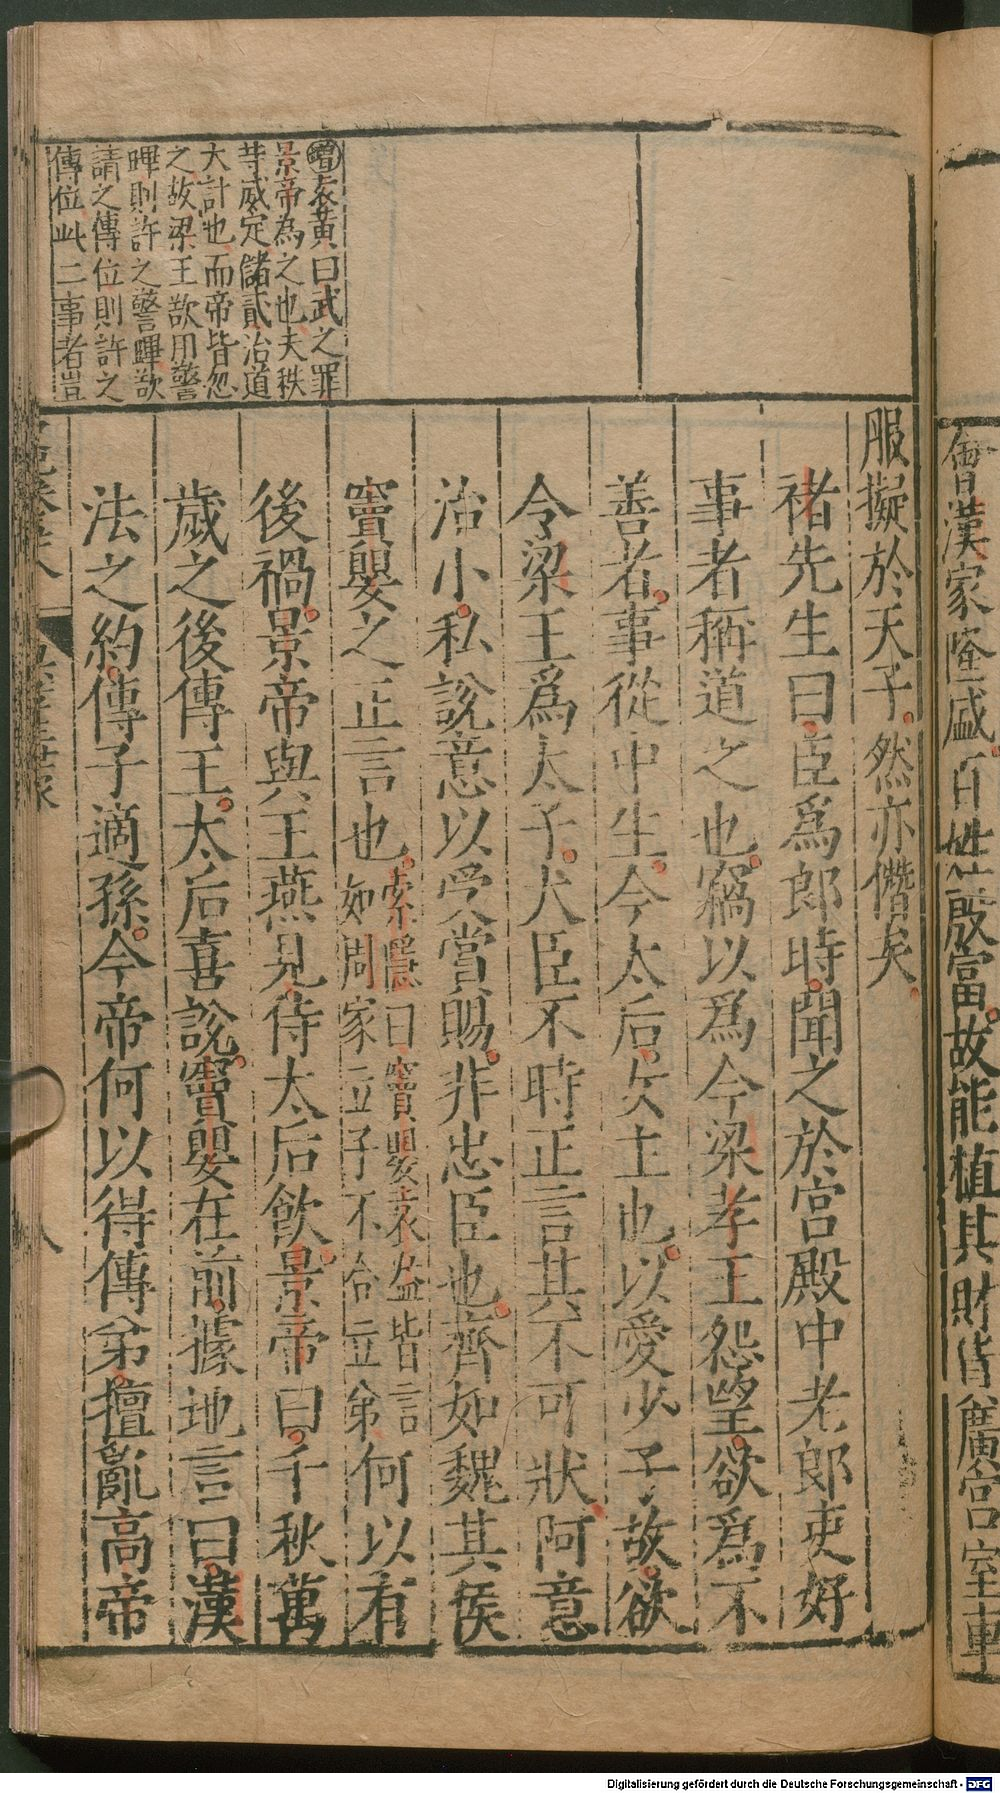 會漢家隆盛百姓殷富故能植其財貨廣宮室車
服擬於天子然亦僭矣
褚先生曰臣爲郎時聞之於宮殿中老郎吏好
事者稱道之也竊以爲今梁孝王怨望欲爲不
善者事從中生今太后女主也以愛少子故欲
令梁王爲太子大臣不時正言其不可狀阿意
治小私說意以受賞賜非忠臣也齊如魏其侯
竇嬰之正言也索隱曰竇嬰袁盎皆言如周家立子不合立弟何以有
後禍景帝與王燕見侍太后飲景帝曰千秋萬
歲之後傳王太后喜說竇嬰在前據地言曰漢
法之約傳子適孫今帝何以得傳弟擅亂高帝
增袁黃曰武之罪
景帝為之也夫秩
等威定儲貳治道
大計也而帝皆忽
之故梁王欲用警
蹕則許之警蹕欲
請之傳位則許之
傳位此二事者豈
八
Digitalisierung gefördert durch die Deutsche Forschungsgemeinschaft - DFG